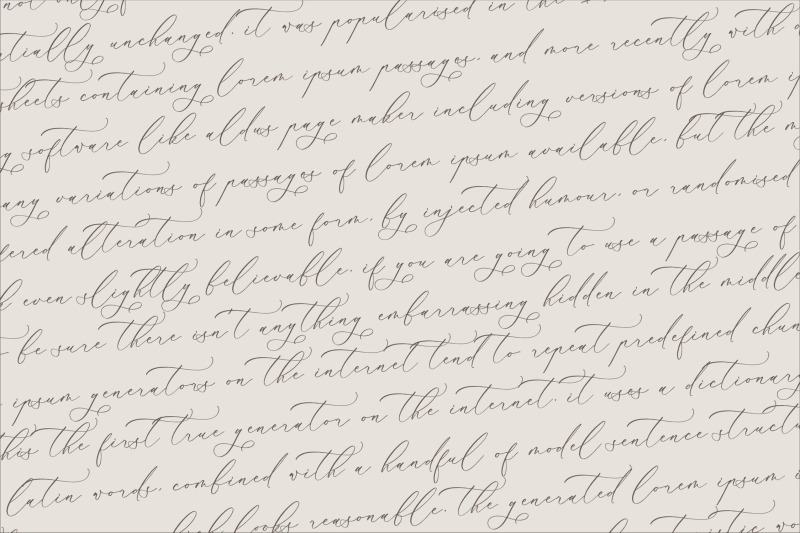 not only
tially unchanged. it was popularised in the
sheets containing lorem ipsum passages. and more recently with
g software like aldus page maker including versions of lorem ip
any variations of passages of lorem ipsum available. but the m
fered alteration in some form. by injected humour. or randomised
k even slightly believable. if you are going to use a passage of
be sure there isn't anything embarrassing hidden in the middle
ipsum generators on the internet tend to repeat predefined chun
this the first true generator on the internet. it uses a dictionary
latin words. combined with a handful of model sentence structu
looks reasonable. the generated lorem ipsum i